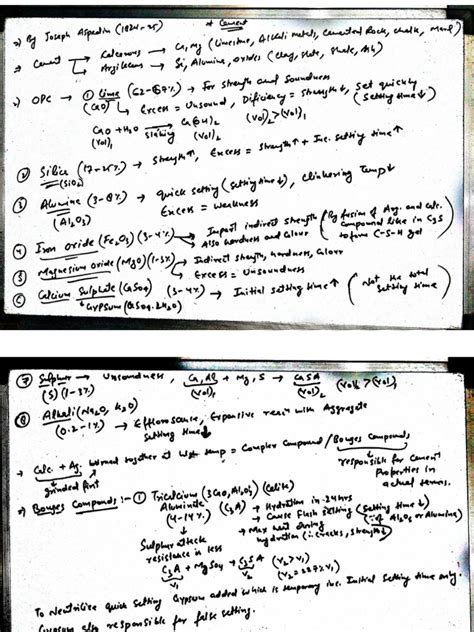 * Cement
→ By Joseph Aspedin (1824-25)
→ Cement → Calcareous → Ca, Mg (Limestone, Alkali metals, Cemented Rock, chalk, Marl)
→ Argillaceous → Si, Alumina, oxides (Clay, Slate, Shale, Ash)
→ OPC → ① Lime (62-67%) → for strength and Soundness
(CaO) → Excess = Unsound, Dificiency = strength↓, Set quickly (Setting time↓)
CaO + H2O → Ca(OH)2 (Vol)2 > (Vol)1
(Vol)1 slaking (Vol)2
② Silica (17-25%) → strength↑, Excess = strength↑ + Inc. setting time↑
(SiO2)
③ Alumina (3-8%) → quick setting (setting time↓), clinkering Temp↓
(Al2O3) Excess = weakness
④ Iron oxide (Fe2O3) (3-4%) → Impart indirect strength (By fusion of Arg. and Calc.
Also hardness and Colour Compound like in C3S
to form C-S-H gel)
⑤ Magnesium oxide (MgO) (1-3%) → Indirect strength, hardness, Colour
→ Excess = Unsoundness
⑥ Calcium Sulphate (CaSO4) (3-4%) → Initial setting time↑ (Not the total
Gypsum (CaSO4.2H2O) setting time)
⑦ Sulphur → Unsoundness, Ca, Al + Mg, S → CaSA (Vol2 > (Vol)1
(S) (1-3%) (Vol)1 (Vol)2
⑧ Alkali (Na2O, K2O)
(0.2-1%) → Efflorosence, Expansive reac with Aggregate
Setting time
→ Calc. + Ag. burned together at high temp = Complex Compound / Bouges Compound,
grinded first responsible for Cement
Properties in
actual terms.
→ Bouges Compounds :- ① Tricalcium (3CaO, Al2O3) (Celite)
Aluminate (C3A) → Hydration in 24hrs
(4-14%) → Cause Flash Setting (Setting time↓)
→ Max heat during (∵ of Al2O3 or Alumine)
hydration (i.e cracks, strength↓)
Sulphur attack
resistance is less
C3A + MgSO4 → C3SA (V2 > V1)
V1 V2 (V2 = 227% V1)
To Neutrilize quick setting Gypsum added which is temporary i.e. Initial setting time only.
Gypsum also responsible for false setting.